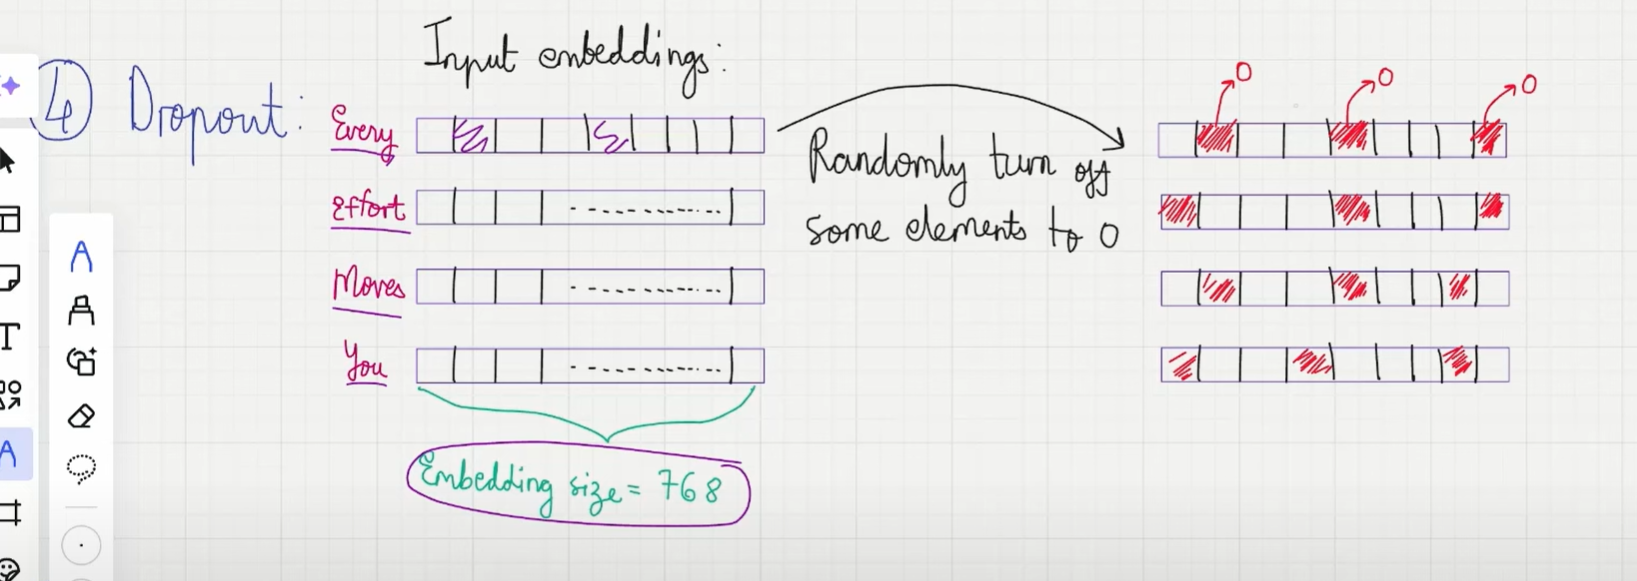 4 Dropout:
Input embeddings:
Every
Effort
Moves
You
Embedding size = 768
Randomly turn off
some elements to 0
0
0
0